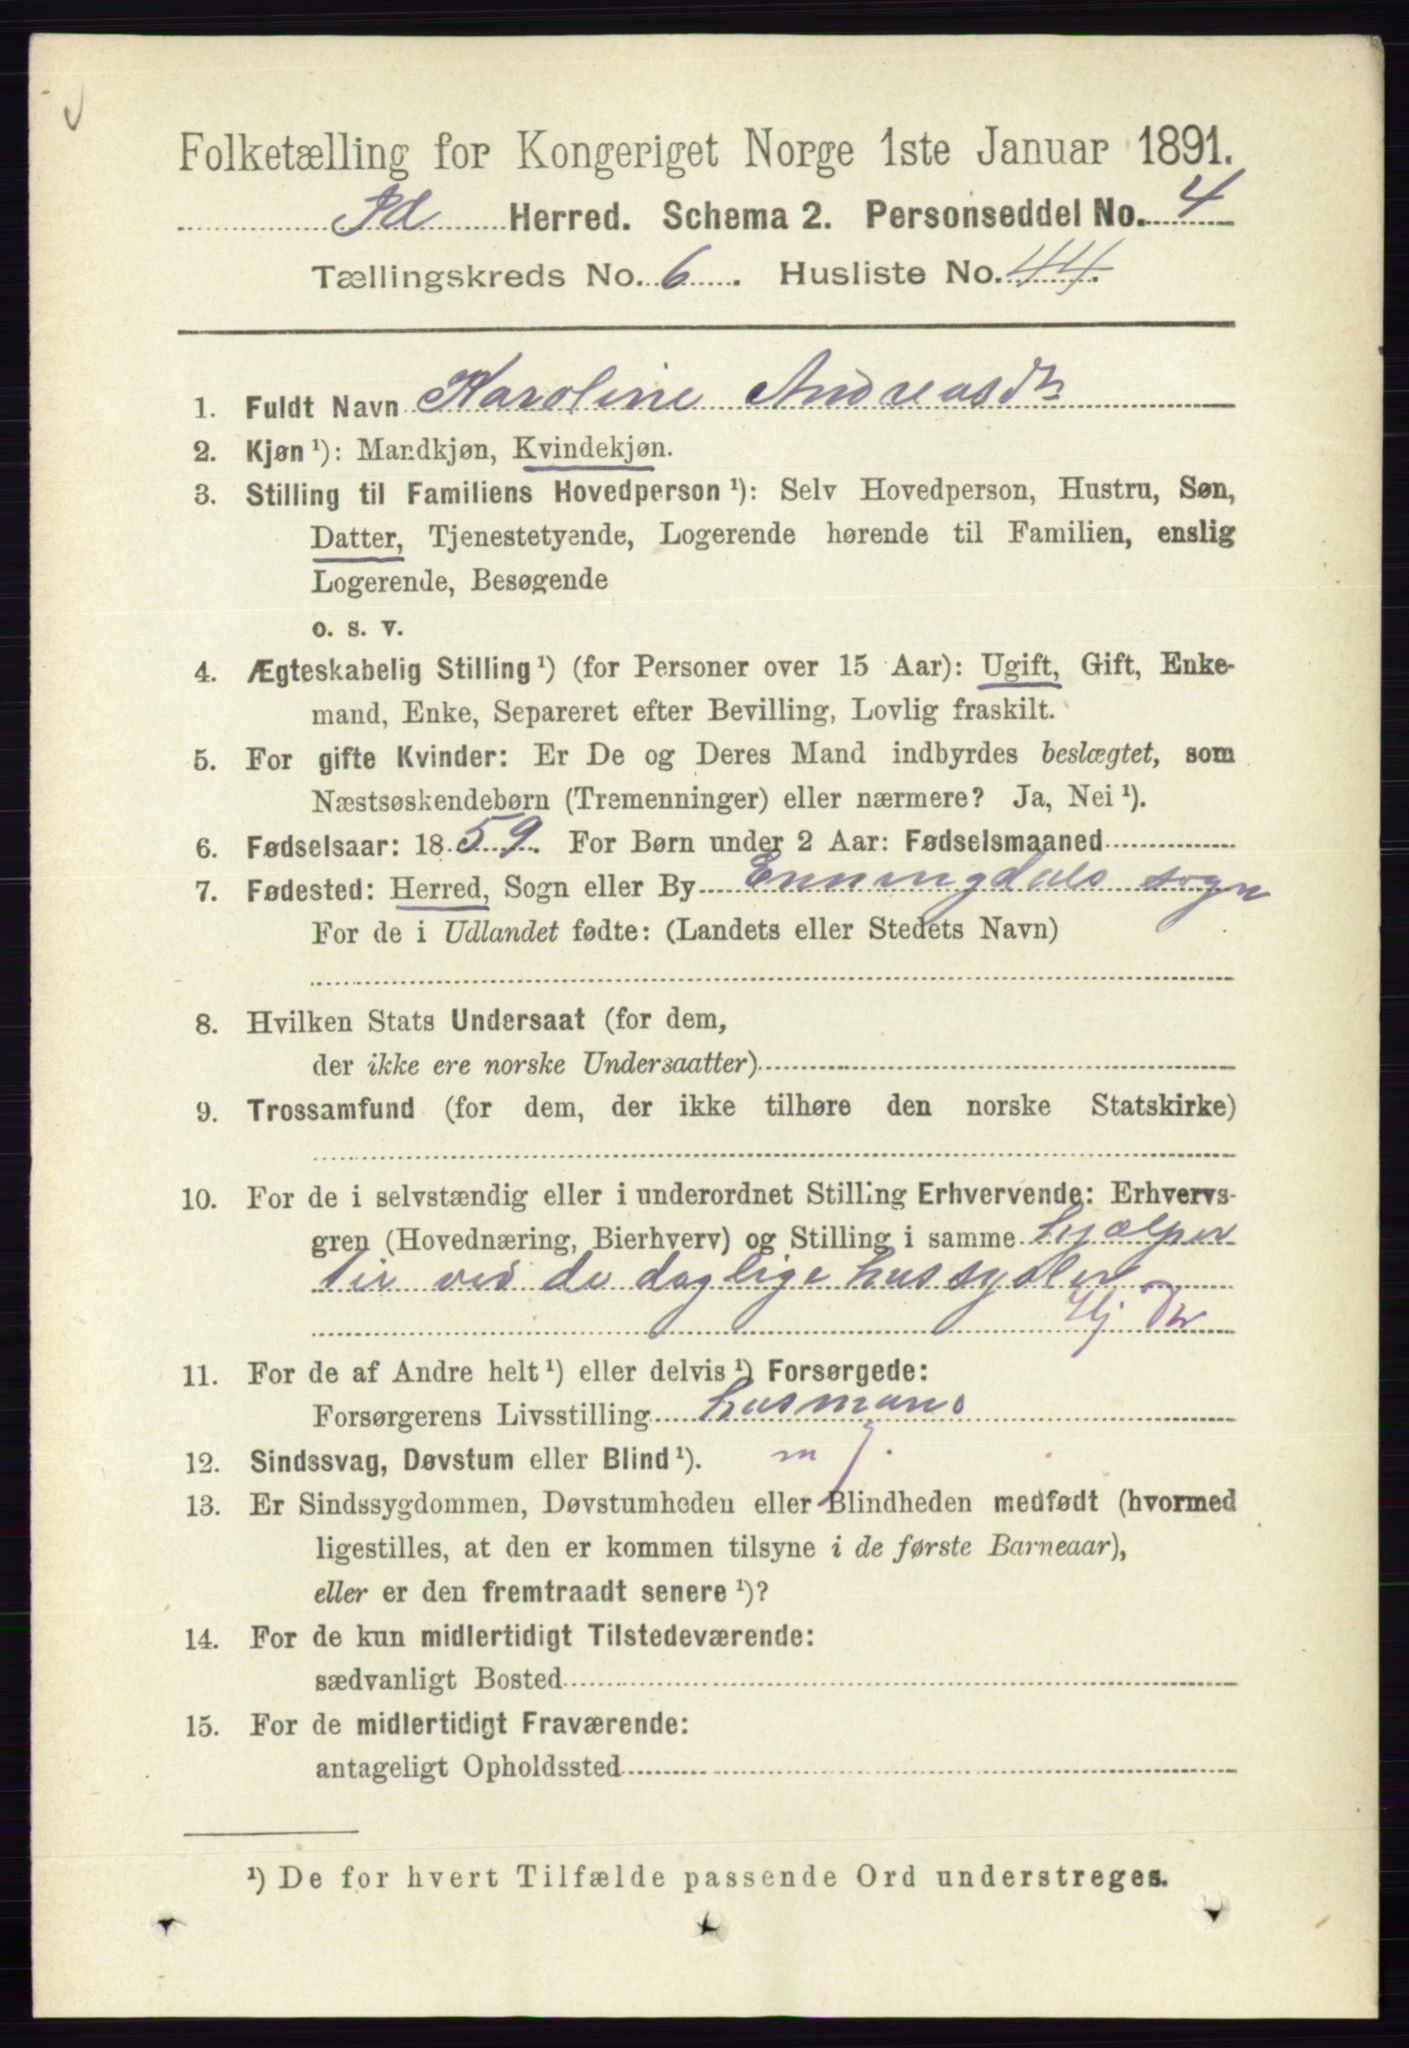 Folketælling for Kongeriget Norge 1ste Januar 1891.
Id Herred. Schema 2. Personseddel No. 4
Tællingskreds No. 6. Husliste No. 44.
1. Fuldt Navn Karoline Andreasdtr
2. Kjøn ¹): Mandkjøn, Kvindekjøn.
3. Stilling til Familiens Hovedperson ¹): Selv Hovedperson, Hustru, Søn,
Datter, Tjenestetyende, Logerende hørende til Familien, enslig
Logerende, Besøgende
o. s. v.
4. Ægteskabelig Stilling ¹) (for Personer over 15 Aar): Ugift, Gift, Enke-
mand, Enke, Separeret efter Bevilling, Lovlig fraskilt.
5. For gifte Kvinder: Er De og Deres Mand indbyrdes beslægtet, som
Næstsøskendebørn (Tremenninger) eller nærmere? Ja, Nei ¹).
6. Fødselsaar: 1859. For Børn under 2 Aar: Fødselsmaaned
7. Fødested: Herred, Sogn eller By Enningdals sogn
For de i Udlandet fødte: (Landets eller Stedets Navn)
8. Hvilken Stats Undersaat (for dem,
der ikke ere norske Undersaatter)
9. Trossamfund (for dem, der ikke tilhøre den norske Statskirke)
10. For de i selvstændig eller i underordnet Stilling Erhvervende: Erhvervs-
gren (Hovednæring, Bierhverv) og Stilling i samme hjælper
til ved de daglige hussysler
Hj Dtr
11. For de af Andre helt ¹) eller delvis ¹) Forsørgede:
Forsørgerens Livsstilling husmand
12. Sindssvag, Døvstum eller Blind ¹). m j.
13. Er Sindssygdommen, Døvstumheden eller Blindheden medfødt (hvormed
ligestilles, at den er kommen tilsyne i de første Barneaar),
eller er den fremtraadt senere ¹)?
14. For de kun midlertidigt Tilstedeværende:
sædvanligt Bosted
15. For de midlertidigt Fraværende:
antageligt Opholdssted
¹) De for hvert Tilfælde passende Ord understreges.